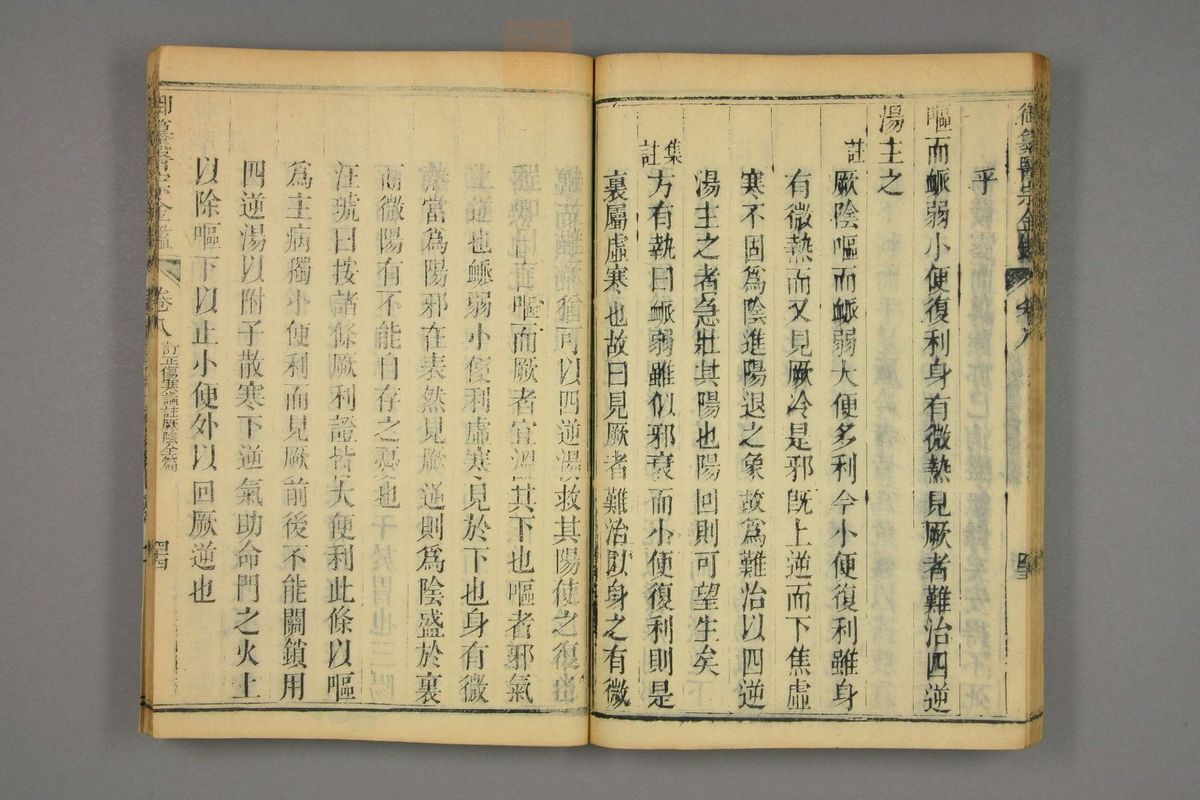 御纂醫宗金鑑 卷八
乎
嘔而脈弱小便復利身有微熱見厥者難治四逆
湯主之
註 厥陰嘔而脈弱大便多利今小便復利雖身
有微熱而又見厥冷是邪既上逆而下焦虛
寒不固為陰進陽退之象故為難治以四逆
湯主之者急壯其陽也陽回則可望生矣
集註 方有執曰脈弱雖似邪衰而小便復利則是
裏屬虛寒也故曰見厥者難治以身之有微
熱而難 猶可以四逆湯救其陽使之復也
程 曰 嘔而厥者宜溫其下也嘔者邪氣
上逆也脈弱小便利虛寒見於下也身有微
熱當為陽邪在表然見厥逆則為陰盛於裏
而微陽有不能自存之憂也
汪琥曰按諸條厥利證皆大便利此條以嘔
為主病獨小便利而見厥前後不能關鎖用
四逆湯以附子散寒下逆氣助命門之火上
以除嘔下以止小便外以回厥逆也
御纂醫宗金鑑 卷八 訂正傷寒論註厥陰全篇